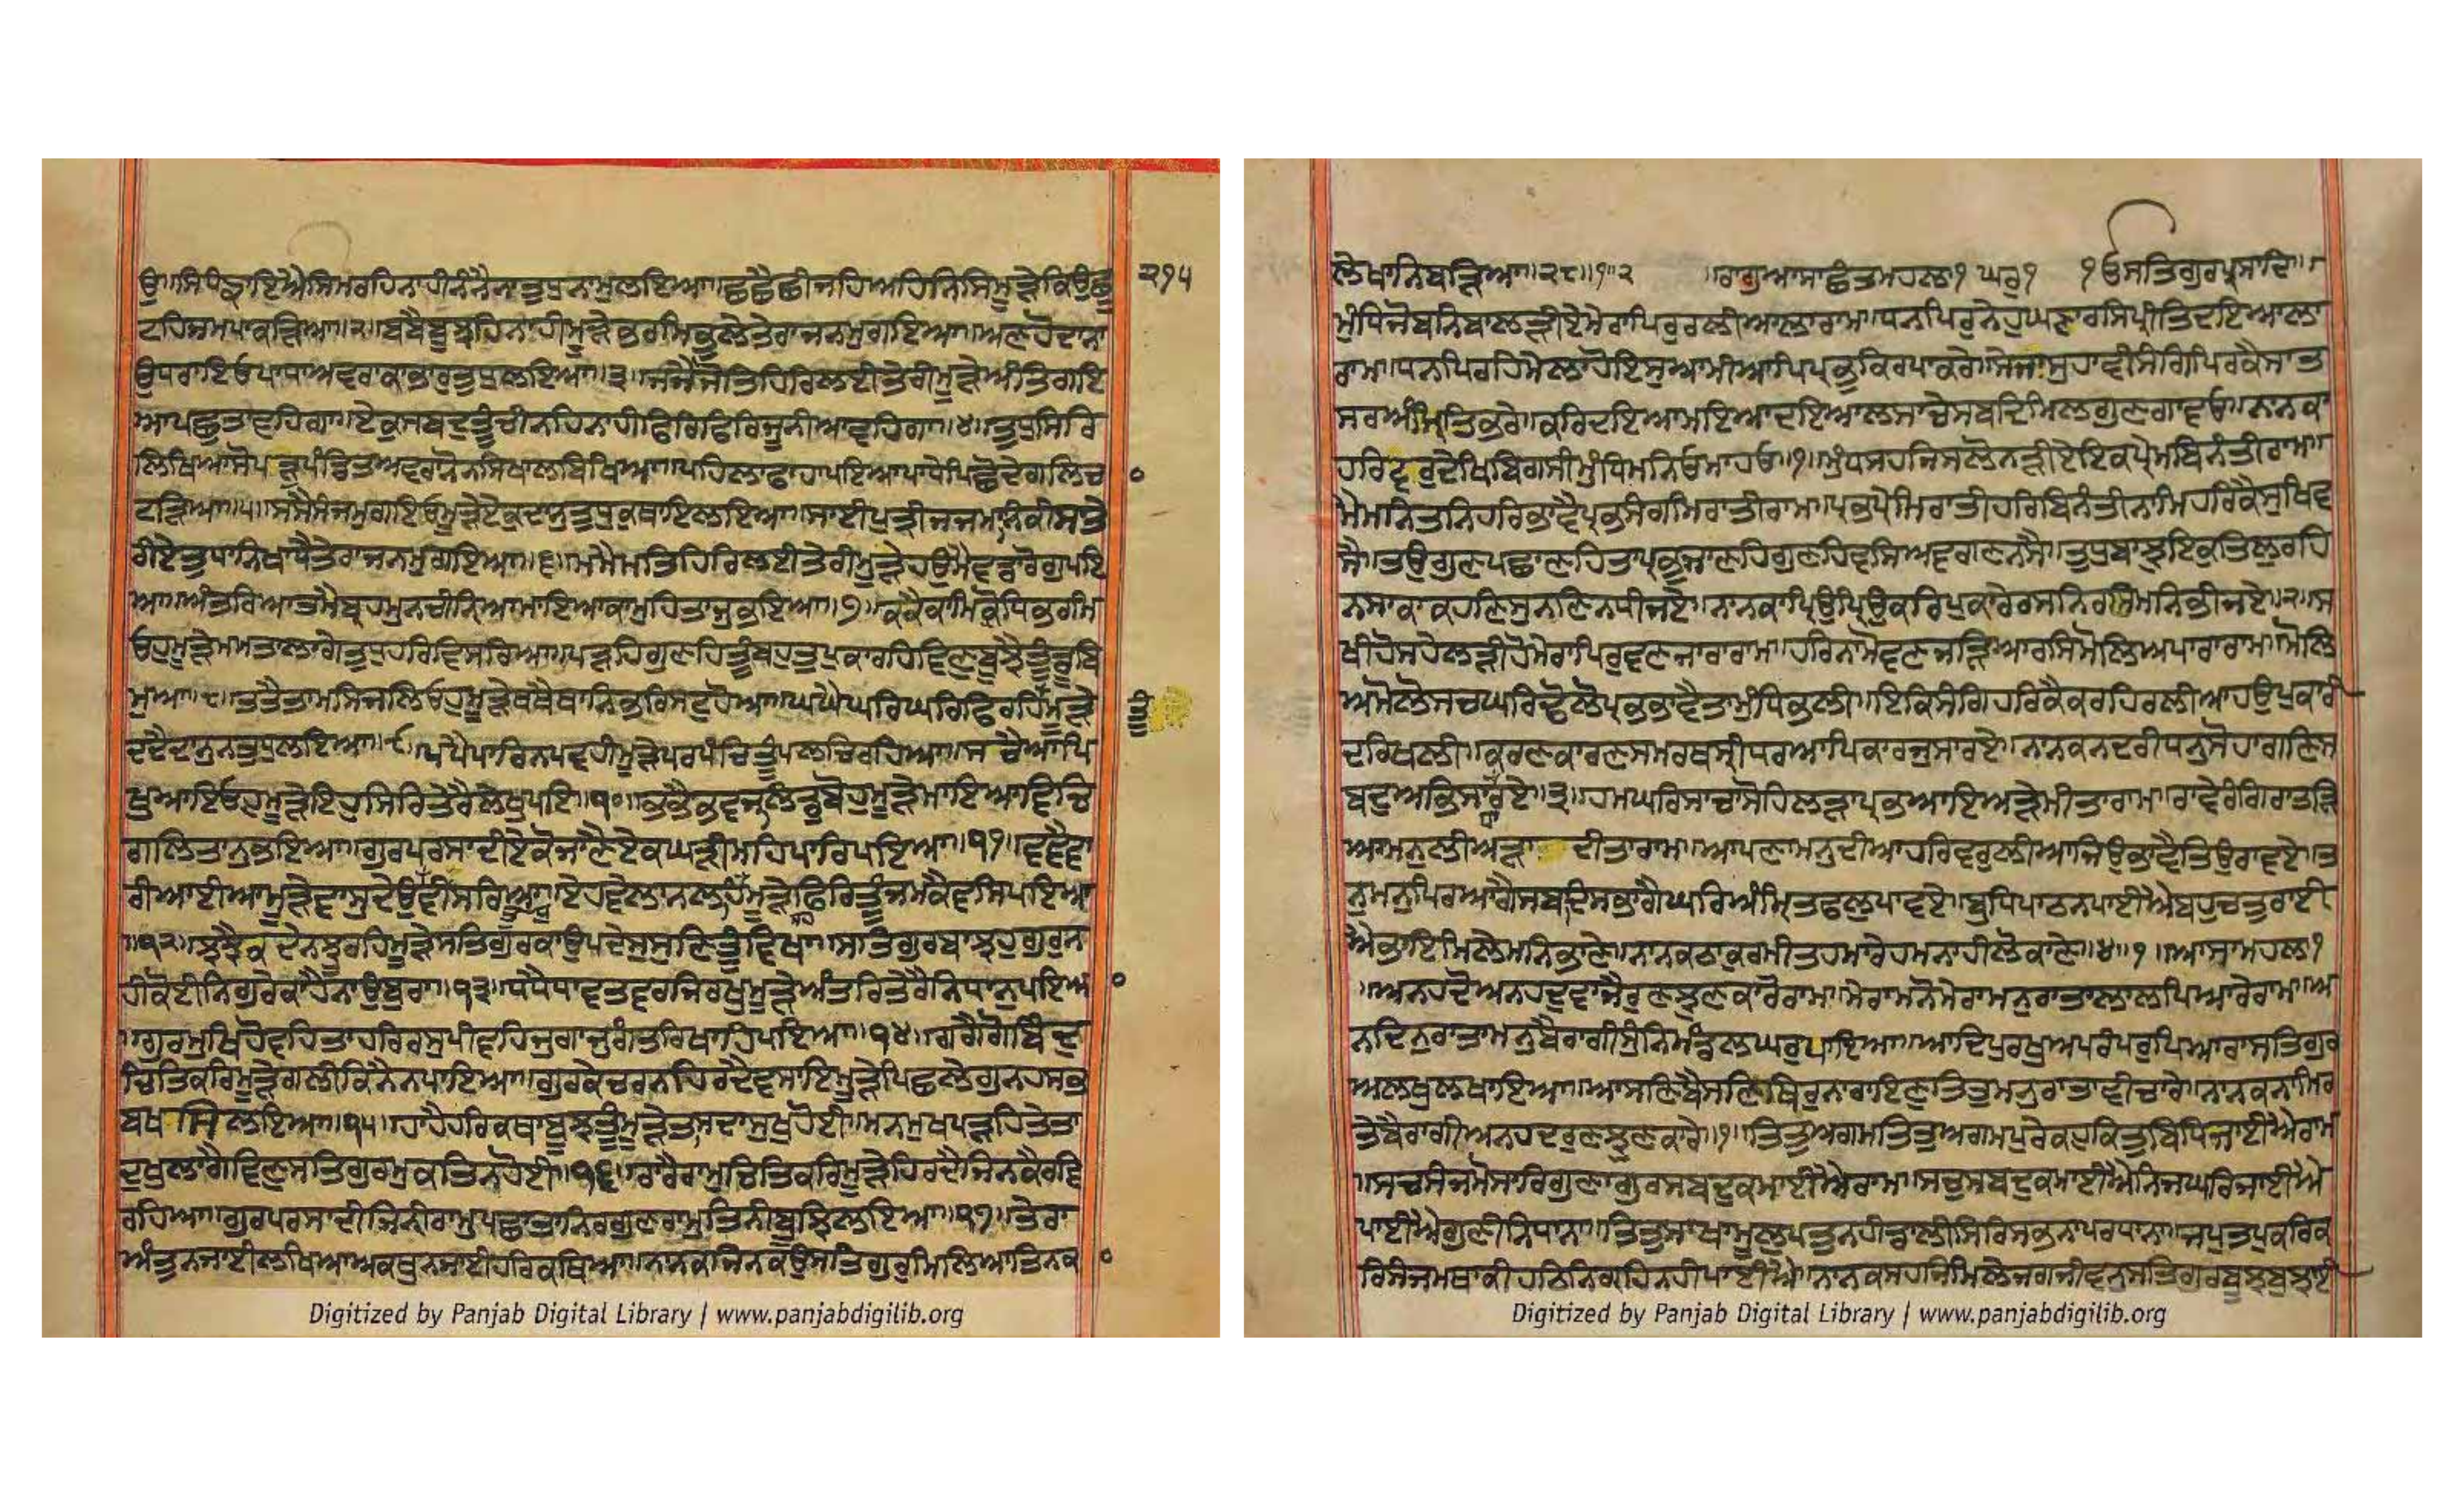 ਉ॥ਸਿਧੰਙਾਇਐ ਸਿਮਰਹਿ ਨਾਹੀ ਨੰਨੈ ਨਾ ਤੁਧੁ ਨਾਮੁ ਲਇਆ॥ਛਛੈ ਛੀਜਹਿ ਅਹਿਨਿਸਿ ਮੂੜੇ ਕਿਉ ਛੂ ੨੧੫
ਟਹਿ ਜਮ ਪਾਕੜਿਆ॥੨॥ਬਬੈ ਬੂਝਹਿ ਨਾਹੀ ਮੂੜੇ ਭਰਮਿ ਭੁਲੇ ਤੇਰਾ ਜਨਮੁ ਗਇਆ॥ਅਣਹੋਦਾ ਨਾ
ਉ ਧਰਾਇਓ ਪਾਧਾ ਅਵਰਾ ਕਾ ਭਾਰੁ ਤੁਧੁ ਲਇਆ॥੩॥ਜਜੈ ਜੋਤਿ ਹਿਰਿ ਲਈ ਤੇਰੀ ਮੂੜੇ ਅੰਤਿ ਗਇ
ਆ ਪਛੁਤਾਵਹਿਗਾ॥ਏਕੁ ਸਬਦੁ ਤੂੰ ਚੀਨਹਿ ਨਾਹੀ ਫਿਰਿ ਫਿਰਿ ਜੂਨੀ ਆਵਹਿਗਾ॥੪॥ਤੁਧੁ ਸਿਰਿ
ਲਿਖਿਆ ਸੋ ਪੜੁ ਪੰਡਿਤ ਅਵਰਾ ਨੋ ਨ ਸਿਖਾਲਿ ਬਿਖਿਆ॥ਪਹਿਲਾ ਫਾਹਾ ਪਇਆ ਪਾਧੇ ਪਿਛੋ ਦੇ ਗਲਿ ਚ
ਟੜਿਆ॥੫॥ਸਸੈ ਸੰਜਮੁ ਗਇਓ ਮੂੜੇ ਏਕੁ ਦਾਨੁ ਤੁਧੁ ਕੁਥਾਇ ਲਇਆ॥ਸਾਈ ਪੁਤ੍ਰੀ ਜਜਮਾਨ ਕੀ ਸਾ ਤੇ
ਰੀ ਏਤੁ ਧਾਨਿ ਖਾਧੈ ਤੇਰਾ ਜਨਮੁ ਗਇਆ॥੬॥ਮਮੈ ਮਤਿ ਹਿਰਿ ਲਈ ਤੇਰੀ ਮੂੜੇ ਹਉਮੈ ਵਡਾ ਰੋਗੁ ਪਇ
ਆ॥ਅੰਤਰਿ ਆਤਮੈ ਬ੍ਰਹਮੁ ਨ ਚੀਨਿਆ ਮਾਇਆ ਕਾ ਮੁਹਤਾਜੁ ਭਇਆ॥੭॥ਕਕੈ ਕਾਮਿ ਕ੍ਰੋਧਿ ਭਰਮਿ
ਓਹੁ ਮੂੜੇ ਮਮਤਾ ਲਾਗੇ ਤੁਧੁ ਹਰਿ ਵਿਸਰਿਆ॥ਪੜਹਿ ਗੁਣਹਿ ਤੂੰ ਬਹੁਤੁ ਪੁਕਾਰਹਿ ਵਿਣੁ ਬੂਝੇ ਤੂੰ ਡੂਬਿ
ਮੁਆ॥੮॥ਤਤੈ ਤਾਮਸਿ ਜਲਿਓਹੁ ਮੂੜੇ ਥਥੈ ਥਾਨ ਭਰਿਸਟੁ ਹੋਆ॥ਘਘੈ ਘਰਿ ਘਰਿ ਫਿਰਹਿ ਮੂੜੇ
ਦਦੈ ਦਾਨੁ ਨ ਤੁਧੁ ਲਇਆ॥੯॥ਪਪੈ ਪਾਰਿ ਨ ਪਵਹੀ ਮੂੜੇ ਪਰਪੰਚਿ ਤੂੰ ਪਲਚਿ ਰਹਿਆ॥ਸਚੈ ਆਪਿ
ਖੁਆਇਓਹੁ ਮੂੜੇ ਇਹੁ ਸਿਰਿ ਤੇਰੈ ਲੇਖੁ ਪਇਆ॥੧੦॥ਭਭੈ ਭਵਜਲਿ ਡੁਬੋਹੁ ਮੂੜੇ ਮਾਇਆ ਵਿਚਿ
ਗਲਿਤਾਨੁ ਭਇਆ॥ਗੁਰ ਪਰਸਾਦੀ ਏਕੋ ਜਾਣੈ ਏਕ ਘੜੀ ਮਹਿ ਪਾਰਿ ਪਇਆ॥੧੧॥ਵਵੈ ਵਾ
ਰੀ ਆਈਆ ਮੂੜੇ ਵਾਸੁਦੇਉ ਵੀਸਰਿਆ॥ਏਹ ਵੇਲਾ ਨ ਲਹਹਿ ਮੂੜੇ ਫਿਰਿ ਤੂੰ ਜਮ ਕੈ ਵਸਿ ਪਇਆ
॥੧੨॥ਝਝੈ ਕਦੇ ਨ ਝੂਰਹਿ ਮੂੜੇ ਸਤਿਗੁਰ ਕਾ ਉਪਦੇਸੁ ਸੁਣਿ ਤੂੰ ਵਿਖਾ॥ਸਤਿਗੁਰ ਬਾਝਹੁ ਗੁਰੁ ਨ
ਹੀ ਕੋਈ ਨਿਗੁਰੇ ਕਾ ਹੈ ਨਾਉ ਬੁਰਾ॥੧੩॥ਧਧੈ ਧਾਵਤ ਵਰਜਿ ਰਖੁ ਮੂੜੇ ਅੰਤਰਿ ਤੇਰੈ ਨਿਧਾਨੁ ਪਇਆ
॥ਗੁਰਮੁਖਿ ਹੋਵਹਿ ਤਾ ਹਰਿ ਰਸੁ ਪੀਵਹਿ ਜੁਗਾ ਜੁਗੰਤਰਿ ਖਾਹਿ ਪਇਆ॥੧੪॥ਗਗੈ ਗੋਬਿਦੁ
ਚਿਤਿ ਕਰਿ ਮੂੜੇ ਗਲੀ ਕਿਨੈ ਨ ਪਾਇਆ॥ਗੁਰ ਕੇ ਚਰਨ ਹਿਰਦੈ ਵਸਾਇ ਮੂੜੇ ਪਿਛਲੇ ਗੁਨਹ ਸਭ
ਬਖਸਿ ਲਇਆ॥੧੫॥ਹਾਹੈ ਹਰਿ ਕਥਾ ਬੂਝੁ ਤੂੰ ਮੂੜੇ ਤਾ ਸਦਾ ਸੁਖੁ ਹੋਈ॥ਮਨਮੁਖ ਪੜਹਿ ਤੇਤਾ
ਦੁਖੁ ਲਾਗੈ ਵਿਣੁ ਸਤਿਗੁਰ ਮੁਕਤਿ ਨ ਹੋਈ॥੧੬॥ਰਾਰੈ ਰਾਮੁ ਚਿਤਿ ਕਰਿ ਮੂੜੇ ਹਿਰਦੈ ਜਿਨ ਕੈ ਰਵਿ
ਰਹਿਆ॥ਗੁਰ ਪਰਸਾਦੀ ਜਿਨੀ ਰਾਮੁ ਪਛਾਤਾ ਨਿਰਗੁਣ ਰਾਮੁ ਤਿਨੀ ਬੂਝਿ ਲਇਆ॥੧੭॥ਤੇਰਾ
ਅੰਤੁ ਨ ਜਾਈ ਲਖਿਆ ਅਕਥੁ ਨ ਜਾਈ ਹਰਿ ਕਥਿਆ॥ਨਾਨਕ ਜਿਨ ਕਉ ਸਤਿਗੁਰੁ ਮਿਲਿਆ ਤਿਨ ਕਾ
Digitized by Panjab Digital Library | www.panjabdigilib.org
ਲੇਖਾ ਨਿਬੜਿਆ॥੧੮॥੧॥੨ ॥ਰਾਗੁ ਆਸਾ ਛੰਤ ਮਹਲਾ ੧ ਘਰੁ ੧ ੧ਓ ਸਤਿਗੁਰ ਪ੍ਰਸਾਦਿ॥
ਮੁੰਧ ਜੋਬਨਿ ਬਾਲੜੀਏ ਮੇਰਾ ਪਿਰੁ ਰਲੀਆਲਾ ਰਾਮ॥ਧਨ ਪਿਰ ਨੇਹੁ ਘਣਾ ਰਸਿ ਪ੍ਰੀਤਿ ਦਇਆਲਾ
ਰਾਮ॥ਧਨ ਪਿਰਹਿ ਮੇਲਾ ਹੋਇ ਸੁਆਮੀ ਆਪਿ ਪ੍ਰਭੁ ਕਿਰਪਾ ਕਰੇ॥ਸੇਜਾ ਸੁਹਾਵੀ ਸੰਗਿ ਪਿਰ ਕੈ ਸਾਤ
ਸਰ ਅੰਮ੍ਰਿਤ ਭਰੇ॥ਕਰਿ ਦਇਆ ਮਇਆ ਦਇਆਲ ਸਾਚੇ ਸਬਦਿ ਮਿਲਿ ਗੁਣ ਗਾਵਓ॥ਨਾਨਕਾ
ਹਰਿ ਵਰੁ ਦੇਖਿ ਬਿਗਸੀ ਮੁੰਧ ਮਨਿ ਓਮਾਹਓ॥੧॥ਮੁੰਧ ਸਹਜਿ ਸਲੋਨੜੀਏ ਇਕ ਪ੍ਰੇਮ ਬਿਨੰਤੀ ਰਾਮ॥
ਮੈ ਮਨਿ ਤਨਿ ਹਰਿ ਭਾਵੈ ਪ੍ਰਭ ਸੰਗਮਿ ਰਾਤੀ ਰਾਮ॥ਪ੍ਰਭ ਪ੍ਰੇਮਿ ਰਾਤੀ ਹਰਿ ਬਿਨੰਤੀ ਨਾਮਿ ਹਰਿ ਕੈ ਸੁਖਿ ਵ
ਸੈ॥ਤਉ ਗੁਣ ਪਛਾਣਹਿ ਤਾ ਪ੍ਰਭੁ ਜਾਣਹਿ ਗੁਣਹਿ ਵਸਿ ਅਵਗਣ ਨਸੈ॥ਤੁਧੁ ਬਾਝੁ ਇਕੁ ਤਿਲੁ ਰਹਿ
ਨ ਸਾਕਾ ਕਹਣਿ ਸੁਨਣਿ ਨ ਧੀਜਏ॥ਨਾਨਕਾ ਪ੍ਰਿਉ ਪ੍ਰਿਉ ਕਰਿ ਪੁਕਾਰੇ ਰਸਨ ਰਸਿ ਮਨੁ ਭੀਜਏ॥੨॥ਸ
ਖੀਹੋ ਸਹੇਲੜੀਹੋ ਮੇਰਾ ਪਿਰੁ ਵਣਜਾਰਾ ਰਾਮ॥ਹਰਿ ਨਾਮੋ ਵਣੰਜੜਿਆ ਰਸਿ ਮੋਲਿ ਅਪਾਰਾ ਰਾਮ॥ਮੋਲਿ
ਅਮੋਲੋ ਸਚ ਘਰਿ ਢੋਲੋ ਪ੍ਰਭ ਭਾਵੈ ਤਾ ਮੁੰਧ ਭਲੀ॥ਇਕਿ ਸੰਗਿ ਹਰਿ ਕੈ ਕਰਹਿ ਰਲੀਆ ਹਉ ਪੁਕਾਰੀ
ਦਰਿ ਖਲੀ॥ਕਰਣ ਕਾਰਣ ਸਮਰਥ ਸ੍ਰੀਧਰ ਆਪਿ ਕਾਰਜੁ ਸਾਰਏ॥ਨਾਨਕ ਨਦਰੀ ਧਨ ਸੋਹਾਗਣਿ ਸ
ਬਦੁ ਅਭ ਸਾਧਾਰਏ॥੩॥ਹਮ ਘਰਿ ਸਾਚਾ ਸੋਹਿਲੜਾ ਪ੍ਰਭ ਆਇਅੜੇ ਮੀਤਾ ਰਾਮ॥ਰਾਵੇ ਰੰਗਿ ਰਾਤੜਿ
ਆ ਮਨੁ ਲੀਅੜਾ ਦੀਤਾ ਰਾਮ॥ਆਪਣਾ ਮਨੁ ਦੀਆ ਹਰਿ ਵਰੁ ਲੀਆ ਜਿਉ ਭਾਵੈ ਤਿਉ ਰਾਵਏ॥ਤ
ਨੁ ਮਨੁ ਪਿਰ ਆਗੈ ਸਬਦਿ ਸਭਾਗੈ ਘਰਿ ਅੰਮ੍ਰਿਤ ਫਲੁ ਪਾਵਏ॥ਬੁਧਿ ਪਾਠਿ ਨ ਪਾਈਐ ਬਹੁ ਚਤੁਰਾਈ
ਐ ਭਾਇ ਮਿਲੈ ਮਨਿ ਭਾਣੇ॥ਨਾਨਕ ਠਾਕੁਰ ਮੀਤ ਹਮਾਰੇ ਹਮ ਨਾਹੀ ਲੋਕਾਣੇ॥੪॥੧॥ਆਸਾ ਮਹਲਾ ੧
॥ਅਨਹਦੋ ਅਨਹਦੁ ਵਾਜੈ ਰੁਣ ਝੁਣਕਾਰੇ ਰਾਮ॥ਮੇਰਾ ਮਨੋ ਮੇਰਾ ਮਨੁ ਰਾਤਾ ਲਾਲ ਪਿਆਰੇ ਰਾਮ॥ਅ
ਨਦਿਨੁ ਰਾਤਾ ਮਨੁ ਬੈਰਾਗੀ ਸੁੰਨਿ ਮੰਡਲਿ ਘਰੁ ਪਾਇਆ॥ਆਦਿ ਪੁਰਖੁ ਅਪਰੰਪਰੁ ਪਿਆਰਾ ਸਤਿਗੁਰ
ਅਲਖੁ ਲਖਾਇਆ॥ਆਸਣਿ ਬੈਸਣਿ ਥਿਰੁ ਨਾਰਾਇਣੁ ਤਿਤੁ ਮਨੁ ਰਾਤਾ ਵੀਚਾਰੇ॥ਨਾਨਕ ਨਾਮਿ ਰ
ਤੇ ਬੈਰਾਗੀ ਅਨਹਦ ਰੁਣ ਝੁਣਕਾਰੇ॥੧॥ਤਿਤੁ ਅਗਮ ਤਿਤੁ ਅਗਮ ਪੁਰੇ ਕਹੁ ਕਿਤੁ ਬਿਧਿ ਜਾਈਐ ਰਾਮ
॥ਸਚੁ ਸੰਜਮੋ ਸਾਰਿ ਗੁਣਾ ਗੁਰ ਸਬਦੁ ਕਮਾਈਐ ਰਾਮ॥ਸਚੁ ਸਬਦੁ ਕਮਾਈਐ ਨਿਜ ਘਰਿ ਜਾਈਐ
ਪਾਈਐ ਗੁਣੀ ਨਿਧਾਨਾ॥ਤਿਤੁ ਸਾਖਾ ਮੂਲੁ ਪਤੁ ਨਹੀ ਡਾਲੀ ਸਿਰਿ ਸਭਨਾ ਪਰਧਾਨਾ॥ਜਪੁ ਤਪੁ ਕਰਿ ਕ
ਰਿ ਸੰਜਮ ਥਾਕੀ ਹਠਿ ਨਿਗ੍ਰਹਿ ਨਹੀ ਪਾਈਐ॥ਨਾਨਕ ਸਹਜਿ ਮਿਲੇ ਜਗਜੀਵਨ ਸਤਿਗੁਰ ਬੂਝ ਬੁਝਾਈ
Digitized by Panjab Digital Library | www.panjabdigilib.org